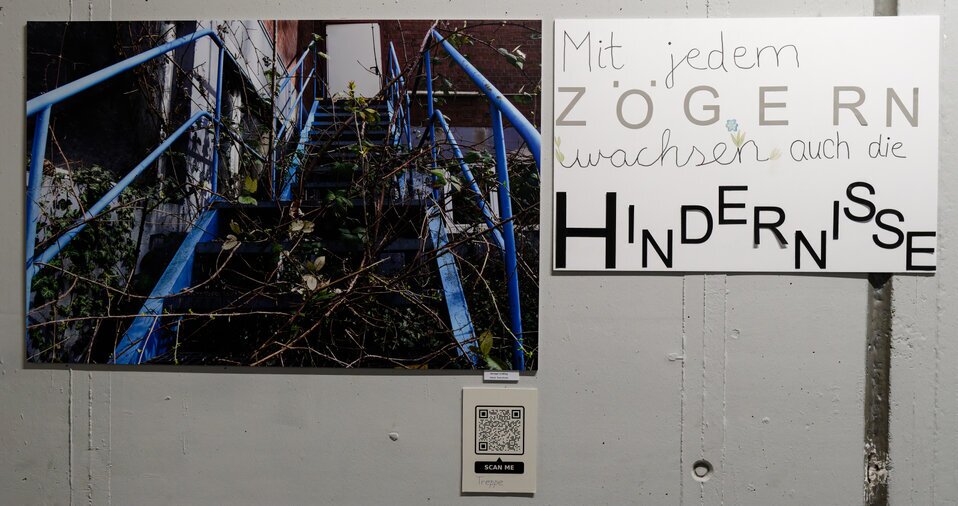 Mit jedem
ZÖGERN
wachsen auch die
HINDERNISSE
SCAN ME
Treppe